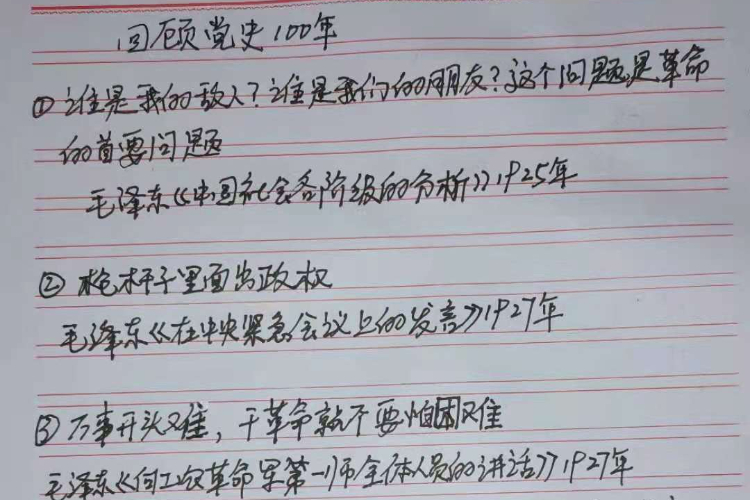 回顾党史100年
①谁是我的敌人?谁是我们的朋友?这个问题是革命
的首要问题
毛泽东《中国社会各阶级的分析》1925年
②枪杆子里面出政权
毛泽东《在中央紧急会议上的发言》1927年
③万事开头难,干革命就不要怕困难
毛泽东《向工农革命军第一师全体人员的讲话》1927年